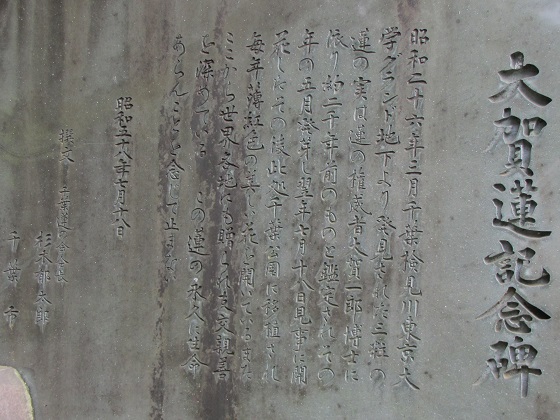 大賀蓮記念碑
昭和二十六年三月千葉検見川東京大
学グランド地下より発見された三粒の
蓮の実は蓮の権威者大賀一郎博士に
依り約二千年前のものと鑑定されその
年の五月発芽し翌年七月十八日見事に開
花したその後此処千葉公園に移植され
毎年薄紅色の美しい花を開いているまた
ここから世界各地にも贈られ友交親善
を深めている この蓮の永久に生命
あらんことを念じて止まない
昭和五十八年七月十八日
撰文 大賀蓮の会会長
杉本郁太郎
千葉市